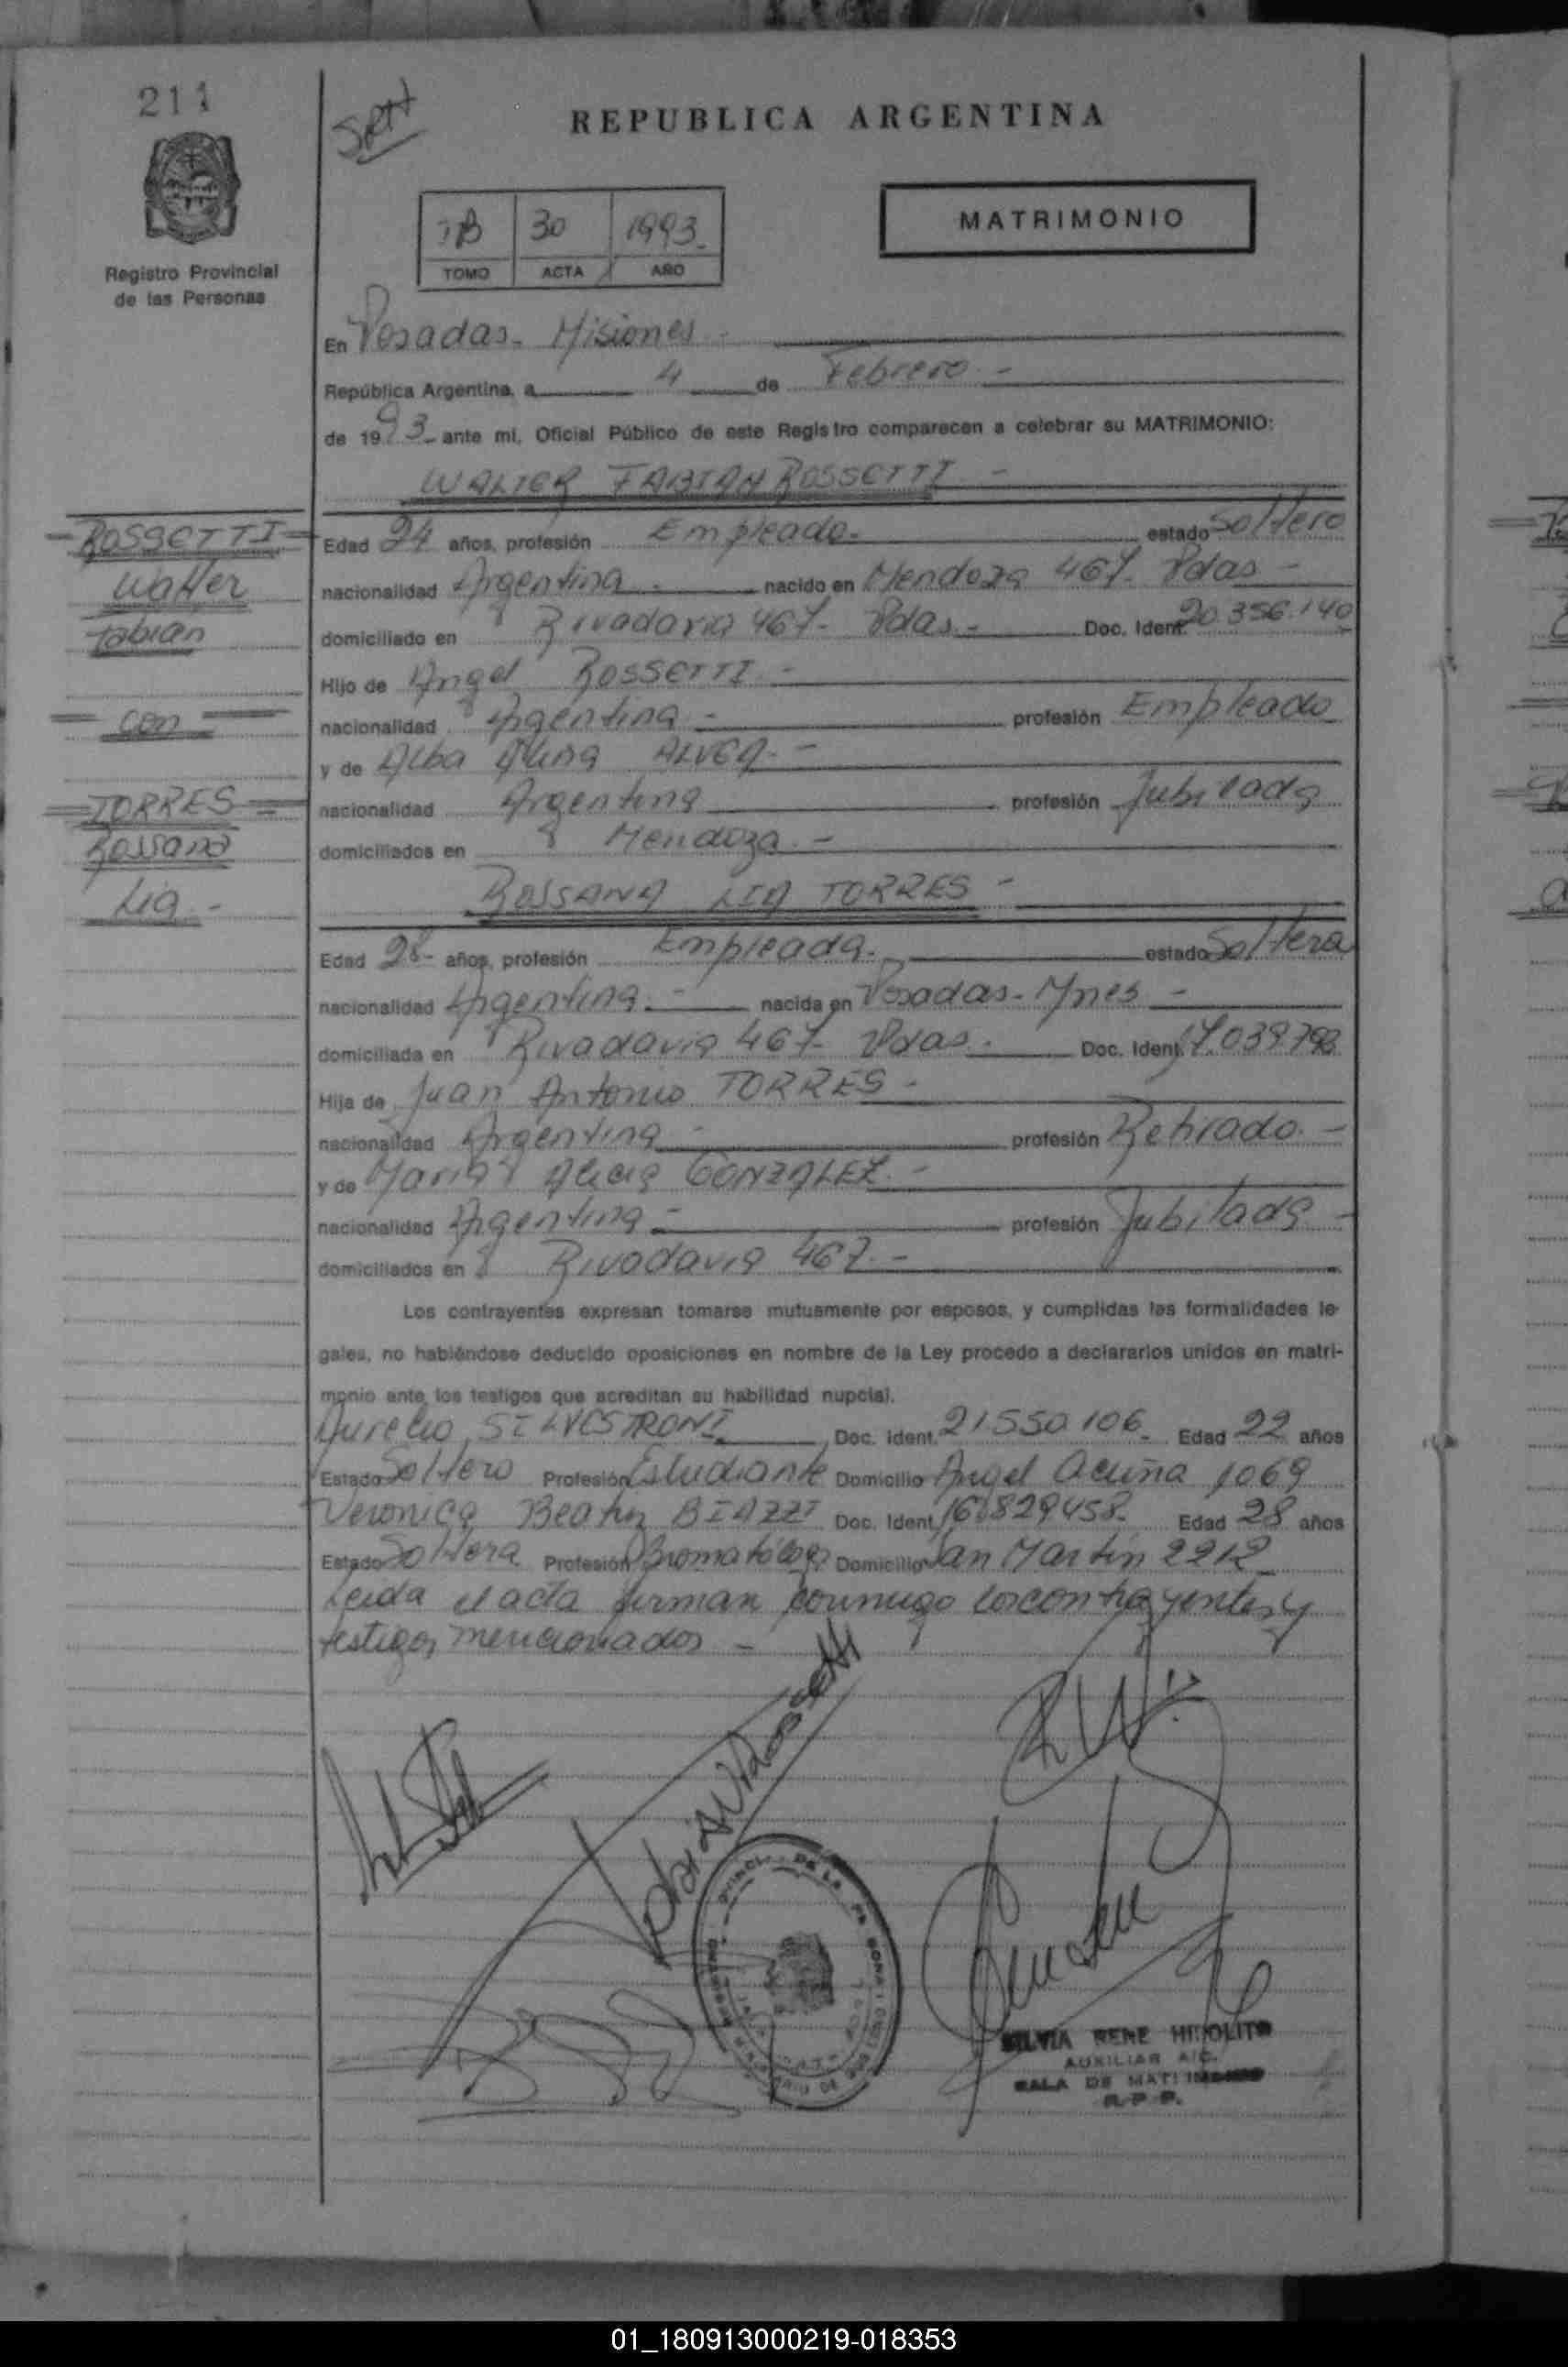 211
REPUBLICA ARGENTINA
30 1993
TOMO ACTA AÑO
MATRIMONIO
Registro Provincial
de las Personas
En Posadas - Misiones -
República Argentina, a 4 de Febrero -
de 1993 ante mi, Oficial Público de este Registro comparecen a celebrar su MATRIMONIO:
WALTER FABIAN ROSSETTI -
ROSSETTI
Walter
Fabian
con
TORRES
Rossana
Lia -
Edad 24 años, profesión Empleado - estado Soltero
nacionalidad Argentina - nacido en Mendoza 467 - Pdas -
domiciliado en Rivadavia 467 - Pdas - Doc. Ident. 20.356.140
Hijo de Angel ROSSETTI -
nacionalidad Argentina - profesión Empleado
y de Alba -
nacionalidad Argentina profesión Jubilada
domiciliados en Mendoza -
ROSSANA LIA TORRES -
Edad 28 - años, profesión Empleada - estado Soltera
nacionalidad Argentina - nacida en Posadas - Mnes -
domiciliada en Rivadavia 467 - Pdas - Doc. Ident. 17.039.793
Hija de Juan Antonio TORRES -
nacionalidad Argentina - profesión Retirado -
y de Maria Alicia GONZALEZ -
nacionalidad Argentina - profesión Jubilada -
domiciliados en Rivadavia 467 -
Los contrayentes expresan tomarse mutuamente por esposos, y cumplidas las formalidades le-
gales, no habiéndose deducido oposiciones en nombre de la Ley procedo a declararlos unidos en matri-
monio ante los testigos que acreditan su habilidad nupcial.
Aurelio SILVESTRONI Doc. Ident. 21550106 - Edad 22 años
Estado Soltero Profesión Estudiante Domicilio Angel Acuña 1069
Veronica Beatriz BIAZZI Doc. Ident. 16.829.458 - Edad 28 años
Estado Soltera Profesión Bromatóloga Domicilio San Martín 2212
Leida el acta firman conmigo los contrayentes y
testigos mencionados -
SILVIA RENE HIPOLITO
AUXILIAR
SALA DE MATRIMONIO
R.P.P.
01_180913000219-018353